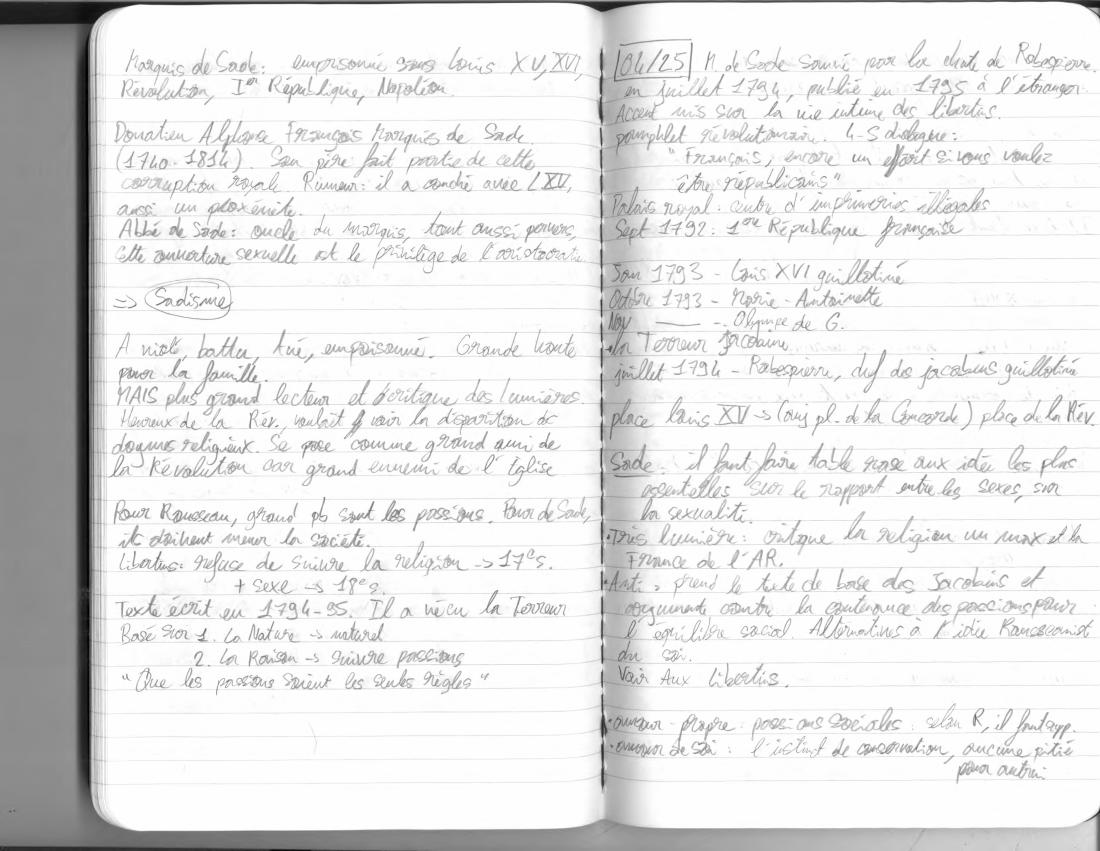 Marquis de Sade: emprisonné sous Louis XV, XVI,
Révolution, Ière République, Napoléon.
Donatien Alphonse François Marquis de Sade
(1740-1814). Son père fait partie de cette
corruption royale. Rumeur: il a couché avec LXV,
aussi un proxénète.
Abbé de Sade: oncle du marquis, tout aussi pervers,
Cette ouverture sexuelle est le privilège de l'aristocratie
=> Sadisme
A violé, battu, tué, empoisonné. Grande honte
pour la famille.
MAIS plus grand lecteur et critique des Lumières.
Heureux de la Rév., voulait voir la disparition de
dogmes religieux. Se pose comme grand ami de
la Révolution car grand ennemi de l'Église
Pour Rousseau, grand pb sont les passions. Pour de Sade,
ils doivent mener la société.
Libertins: refuse de suivre la religion -> 17e s.
+ sexe -> 18e s.
Texte écrit en 1794-95. Il a vécu la Terreur
Basé sur 1. La Nature -> naturel
2. La Raison -> suivre passions
"Que les passions soient les seules règles"
04/25 M. de Sade sauvé par la chute de Robespierre.
en juillet 1794, publié en 1795 à l'étranger.
Accent mis sur la vie intime des libertins.
pamphlet révolutionnaire. 4-5 dialogue:
"Français, encore un effort si vous voulez
être républicains"
Palais royal: centre d'imprimeries illégales
Sept 1792: 1ère République française
Jan 1793 - Louis XVI guillotiné
Octobre 1793 - Marie-Antoinette
Nov —— -. Olympe de G.
la Terreur Jacobine
juillet 1794 - Robespierre, chef des jacobins guillotiné
place Louis XV -> (auj pl. de la Concorde) place de la Rév.
Sade: il faut faire table rase aux idée les plus
essentielles sur le rapport entre les sexes, sur
la sexualité.
·Très lumière: critique la religion un max et la
France de l'AR.
·Anti: prend le texte de base des Jacobins et
argumente contre la contenance des passions pour
l'équilibre social. Alternatives à l'idée Rousseauiste
du soi.
Voir Aux Libertins.
·amour-propre: passions sociales: selon R, il faut supp.
·amour de soi: l'istinct de conservation, aucune pitié
pour autrui